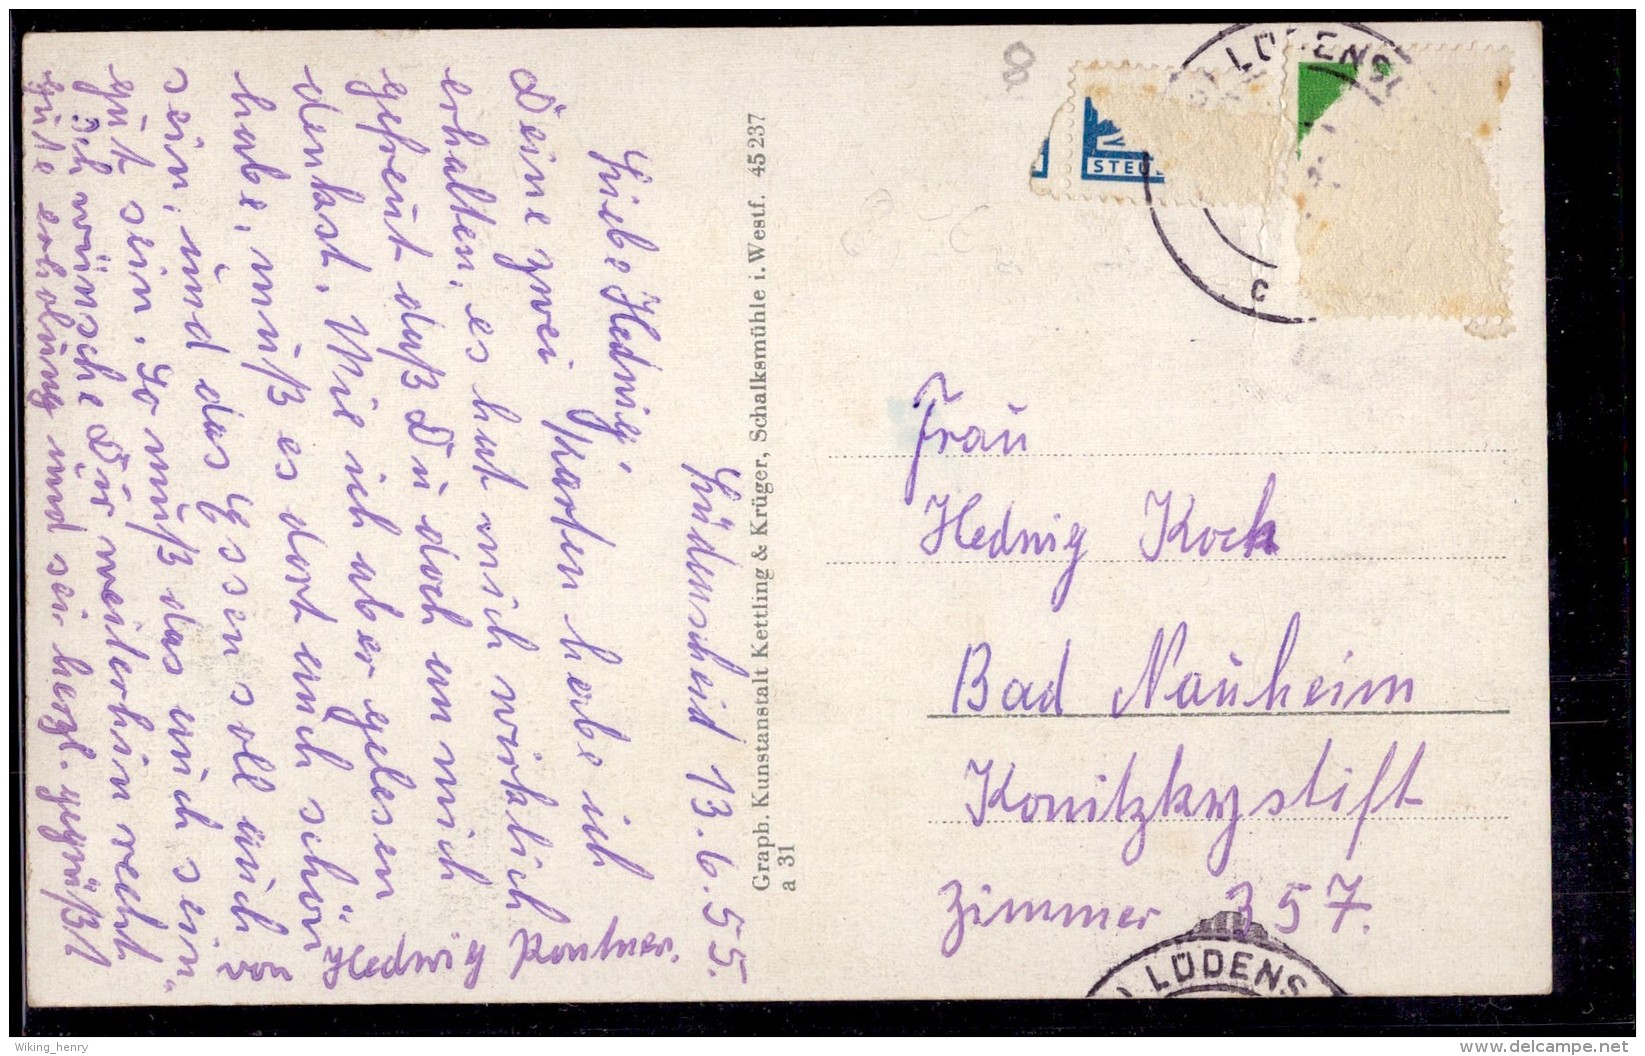 Lüdenscheid 13.6.55.
Liebe Hedwig!
Deine zwei Karten habe ich
erhalten, es hat mich wirklich
gefreut daß Du doch an mich
denkst. Wie ich aber gelesen
habe, muß es dort auch schön
sein, und das Essen soll auch
gut sein. So muß das auch sein.
Ich wünsche Dir weiterhin recht
gute erholung und sei herzl. gegrüßt
von Hedwig
Graph. Kunstanstalt Kettling & Krüger, Schalksmühle i. Westf. 45 237
a 31
8
STEU
LÜDENSC
c
Frau
Hedwig Koch
Bad Nauheim
Konitzkystift
Zimmer 357.
LÜDENS
Wiking_henry
www.delcampe.net